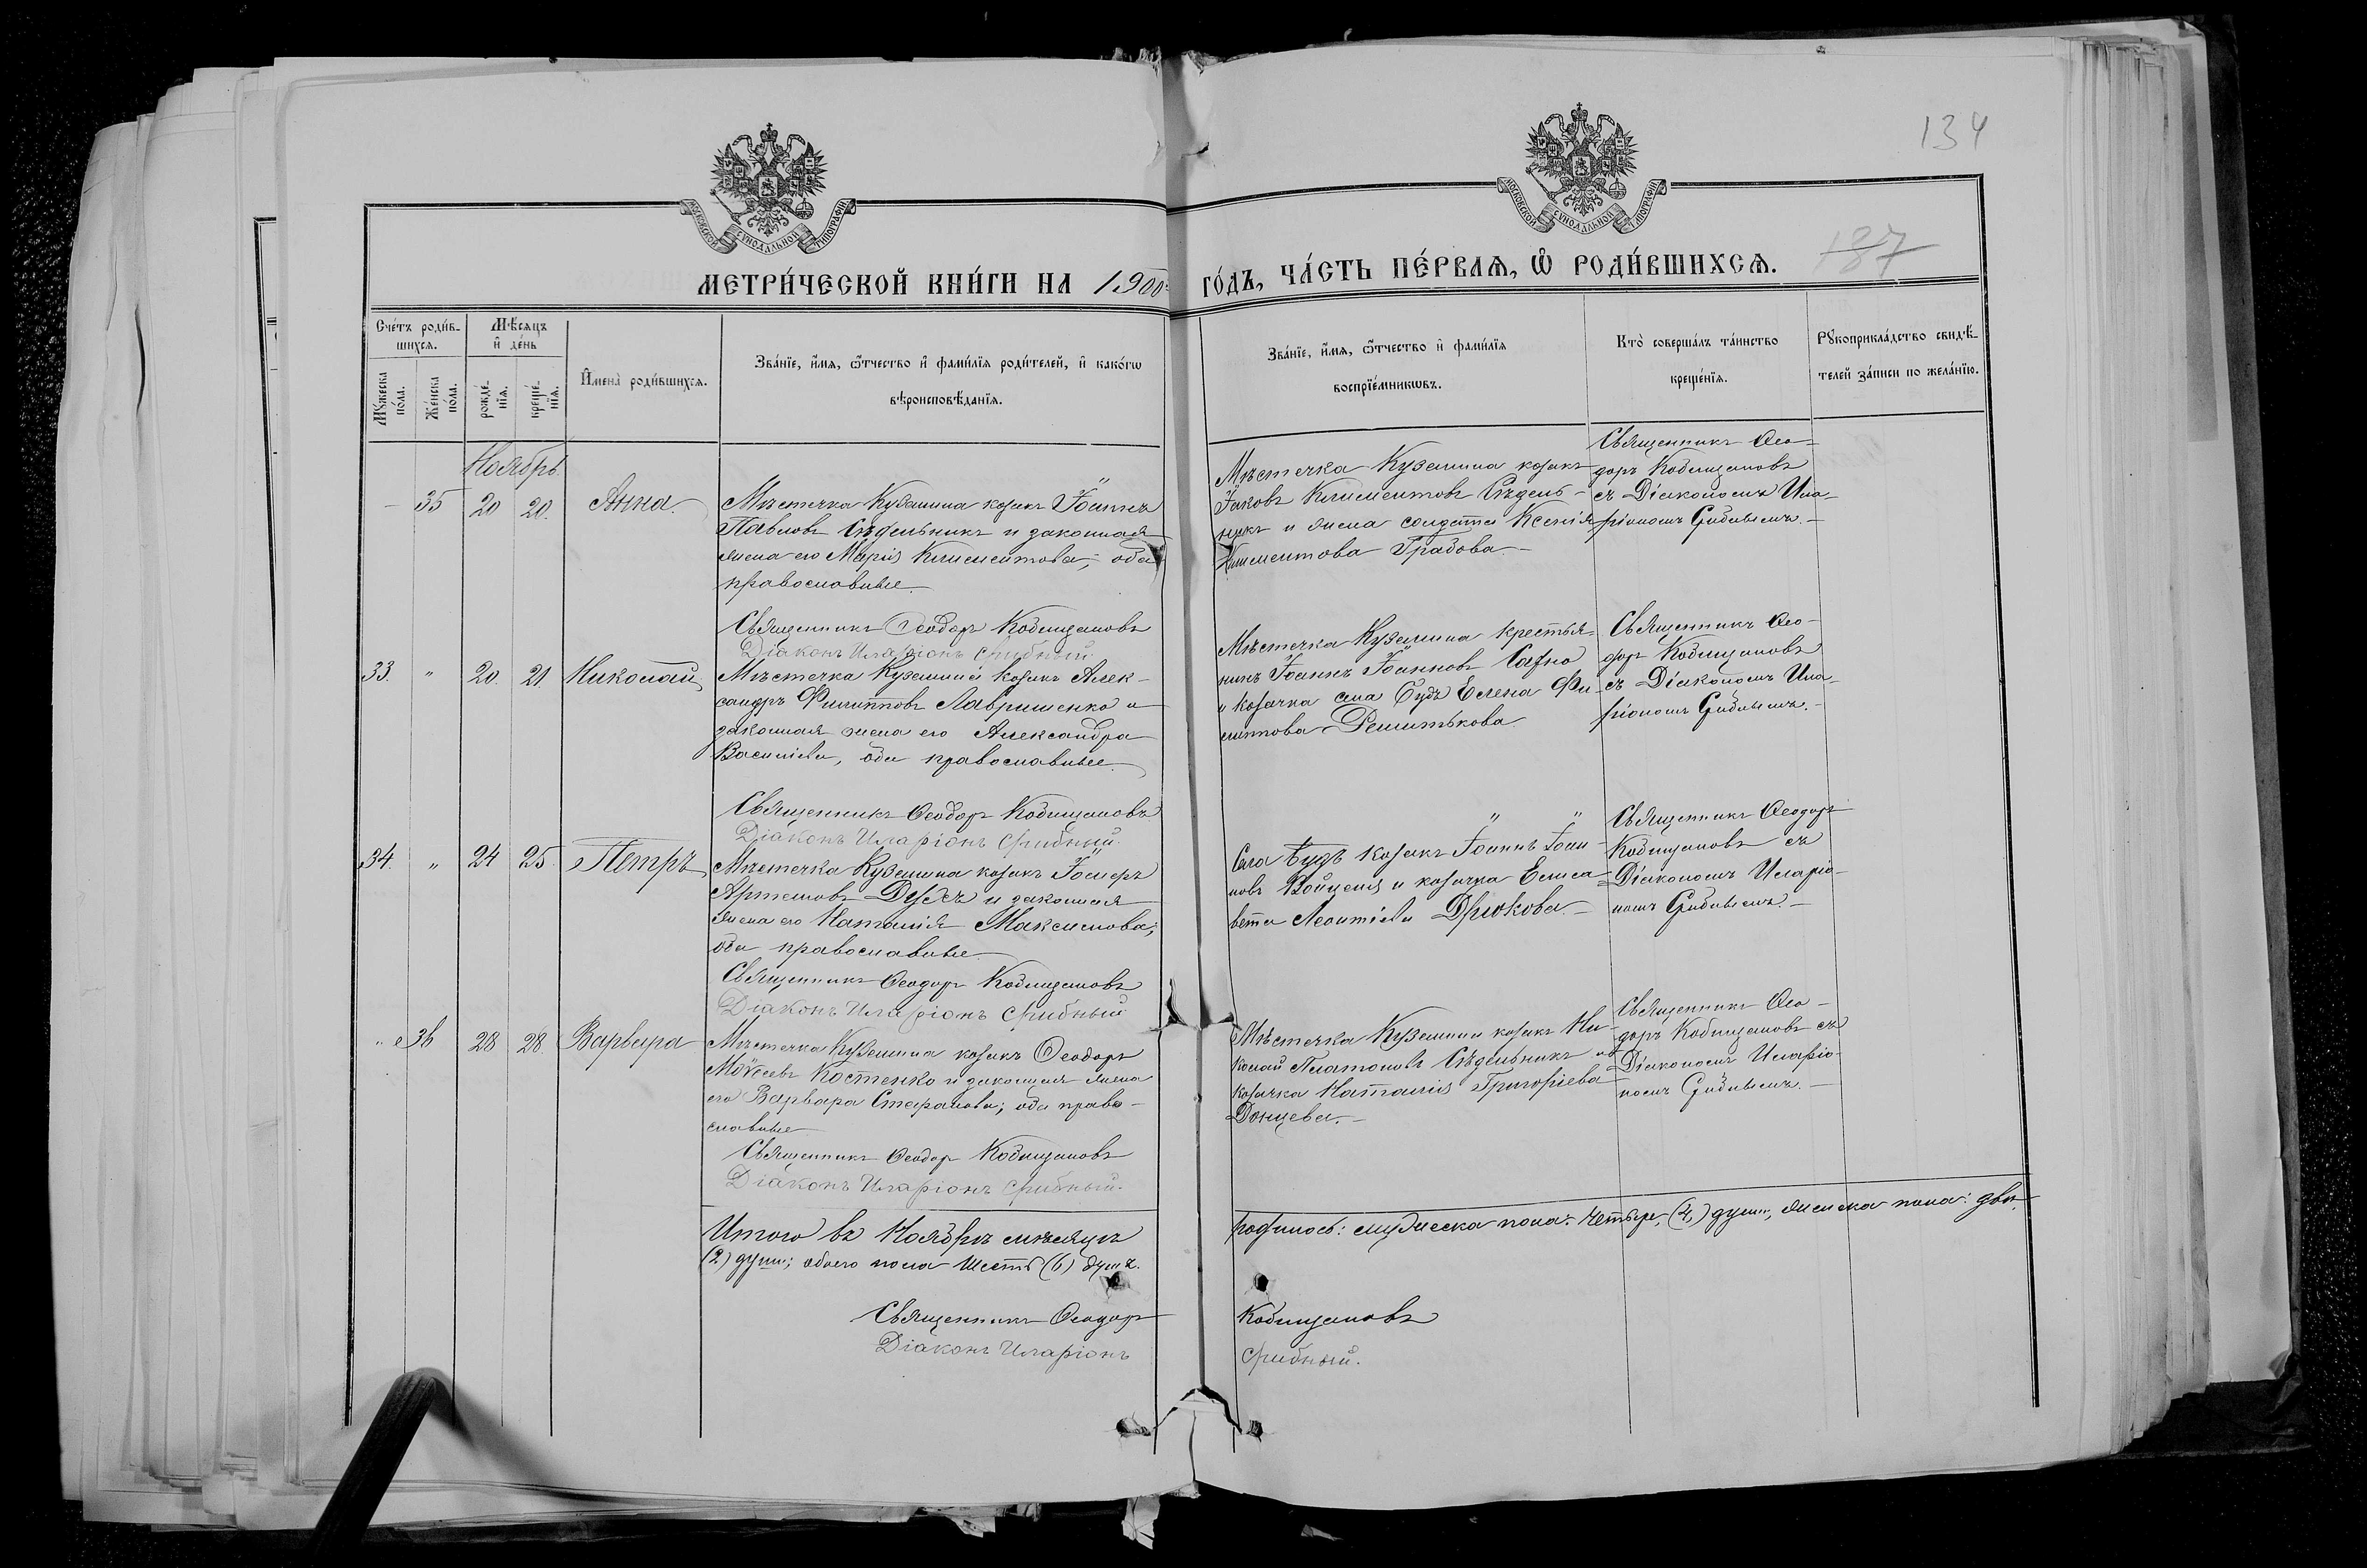 134
МОСКОВСКОЙ СѴНОДАЛЬНОЙ ТИПОГРАФІИ
МОСКОВСКОЙ СѴНОДАЛЬНОЙ ТИПОГРАФІИ
187
МЕТРИ́ЧЕСКОЙ КНИ́ГИ НА 1900 ГО́ДЪ, ЧА́СТЬ ПЕ́РВАѦ, Ѽ РОДИ́ВШИХСѦ.
Сче́тъ роди́в-
шихсѧ.
Мꙋ́жеска по́ла.
Же́нска по́ла.
Мѣ́сѧцъ
и҆ де́нь
рожде́-
нїѧ.
креще́-
нїѧ.
И҆мена̀ роди́вшихсѧ.
Зва́нїе, и҆́мѧ, ѻ҆́тчество и҆ фами́лїѧ роди́телей, и҆ како́гѡ
вѣроисповѣ́данїѧ.
Зва́нїе, и҆́мѧ, ѻ҆́тчество и҆ фами́лїѧ
воспрїе́мникѡвъ.
Кто̀ соверша́лъ та́инство
креще́нїѧ.
Рꙋкоприкла́дство свидѣ́-
телей за́писи по жела́нїю.
Ноябрь
– 35 20 20. Анна.
Мѣстечка Куземина козакъ Іоаннъ
Павловъ Сѣдельникъ и законная
жена его Марія Климентова, оба
православные.
Священникъ Ѳеодоръ Кобищановъ
Діаконъ Иларіонъ Срибный.
Мѣстечка Куземина козакъ
Іаковъ Климентовъ Сѣдель-
никъ и жена солдата Ксенія
Климентова Градова. –
Священникъ Ѳео-
доръ Кобищановъ
съ Діакономъ Ила-
ріономъ Срибнымъ. –
33. " 20. 21. Николай
Мѣстечка Куземина козакъ Алек-
сандръ Филипповъ Лавриненко и
законная жена его Александра
Василіева, оба православные.
Священникъ Ѳеодоръ Кобищановъ
Діаконъ Иларіонъ Срибный.
Мѣстечка Куземина крестья-
нинъ Іоаннъ Іоанновъ
и козачка села Будъ Елена Фи-
липпова
Священникъ Ѳео-
доръ Кобищановъ
съ Діакономъ Ила-
ріономъ Срибнымъ. –
34. " 24 25. Петръ
Мѣстечка Куземина козакъ
Артемовъ и законная
жена его Наталія Максимова;
оба православные.
Священникъ Ѳеодоръ Кобищановъ
Діаконъ Иларіонъ Срибный
Села Будъ козакъ Іоаннъ Іоан-
новъ и козачка Елиса-
вета Леонтіева Дрюкова. –
Священникъ Ѳеодоръ
Кобищановъ съ
Діакономъ Иларіо-
номъ Срибнымъ. –
" 36 28 28. Варвара
Мѣстечка Куземина козакъ Ѳеодоръ
Моѵсеевъ Костенко и законная жена
его Варвара Стефанова; оба право-
славные
Священникъ Ѳеодоръ Кобищановъ
Діаконъ Иларіонъ Срибный.
Мѣстечка Куземина козакъ Ни-
колай Платоновъ Сѣдельникъ и
козачка Наталія Григоріева
Донцева. –
Священникъ Ѳео-
доръ Кобищановъ съ
Діакономъ Иларіо-
номъ Срибнымъ. –
Итого въ Ноябрѣ мѣсяцѣ родилось: мужеска пола: четыре, (4,) души, женска пола: двѣ,
(2) души; обоего пола шесть (6) душъ.
Священникъ Ѳеодоръ Кобищановъ
Діаконъ Иларіонъ Срибный.